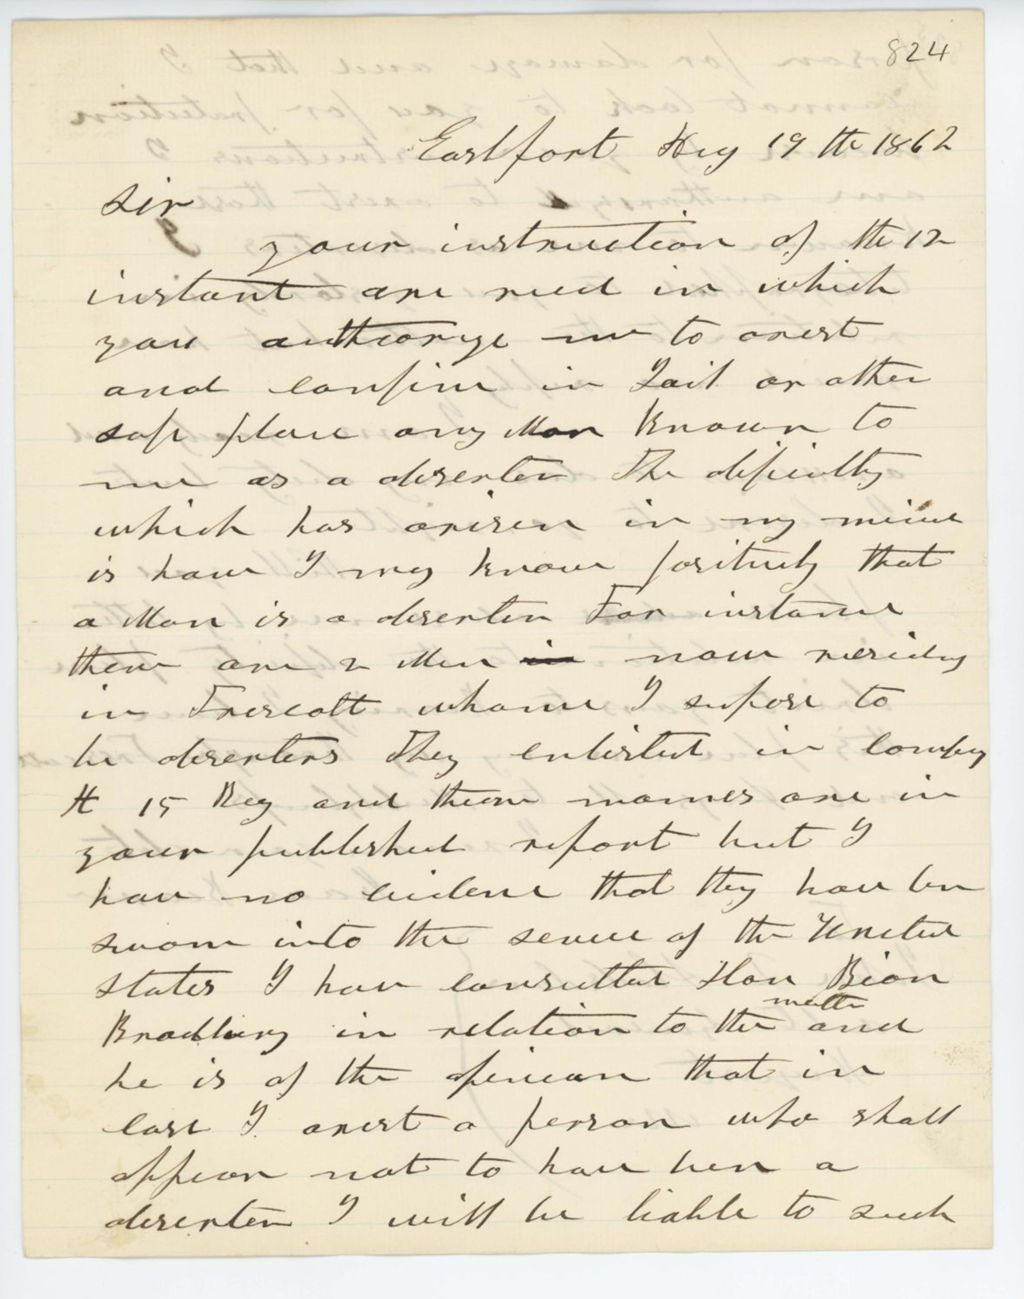 824
Eastport Aug 19th 1862
Sir
your instruction of the 12
instant are recd in which
you authorize me to arest
and confine in Jail or other
safe place any Man known to
me as a deserter The dificulty
which has arisen in my mind
is how I may know positively that
a Man is a deserter For instance
there are 2 Men in now residing
in Trescott whome I supose to
be deserters They enlisted in Company
H 15 Reg and there names are in
your published report but I
have no evidence that they have ben
sworn into the service of the United
States I have consulted Hon Bion
Bradbury in relation to the matter and
he is of the opinion that in
case I arest a person who shall
appear not to have ben a
deserter I will be liable to such